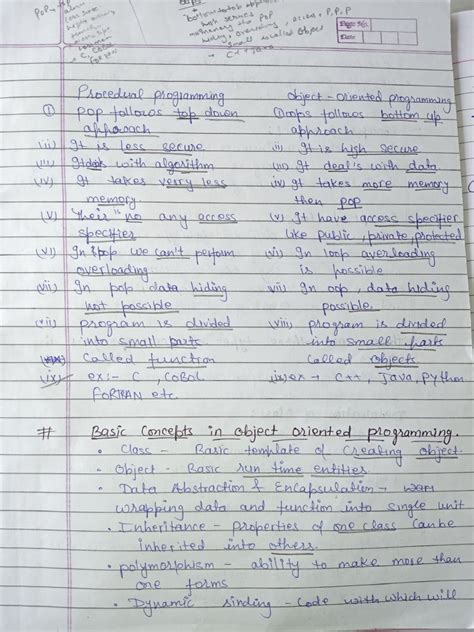 POP → top
allows
less secure
bottom to top approach
high secure
memory
hiding, overloading, access, P, P, P
small called object
C++ Java
Page No.
Date
Procedual programming
object-oriented programming
(i) POP follows top down
approach
(i) OOPs follows bottom up
approach
(ii) It is less secure
ii) It is high secure
(iii) It deals with algorithm
(iii) It deal's with data
(iv) It takes verry less
memory
iv) It takes more memory
then POP
(v) Their "no any access
specifier
(v) It have access specifier
like public, private, protected
(vi) In pop we can't perform
overloading
vi) In oop overloading
is possible
(vii) In pop data hiding
not possible
vii) In oop, data hiding
possible.
viii) program is divided
into small parts
called function
viii) program is divided
into small parts
called objects
ix) ex:- C, COBOL
FORTRAN etc.
ix) ex → C++, Java, Python
# Basic Concepts in object oriented programming.
• Class - Basic template of Creating object
• Object - Basic run time entities.
• Data Abstraction & Encapsulation →
wrapping data and function into single unit
• Inheritance - properties of one class Can be
inherited into others.
• polymorphism - ability to make more than
one forms
• Dynamic Binding - Code with which will